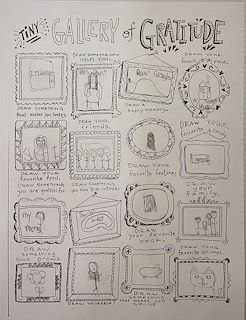 TINY GALLERY of GRATITUDE
DRAW someone who
HELPS YOU.
DRAW YOUR
favorite place.
DRAW SOMETHING
that makes you happy.
DRAW YOUR
friends.
DRAW a
happy memory.
DRAW YOUR
favorite
DRAW YOUR
favorite food.
DRAW SOMETHING
you are grateful for.
DRAW SOMETHING
DRAW YOUR
favorite
DRAW
your
my
friend
DRAW
SOMETHING
that grows.
DRAW
your favorite
book.
DRAW YOUR
favorite animal.
DRAW YOURSELF
DRAW
SOMETHING